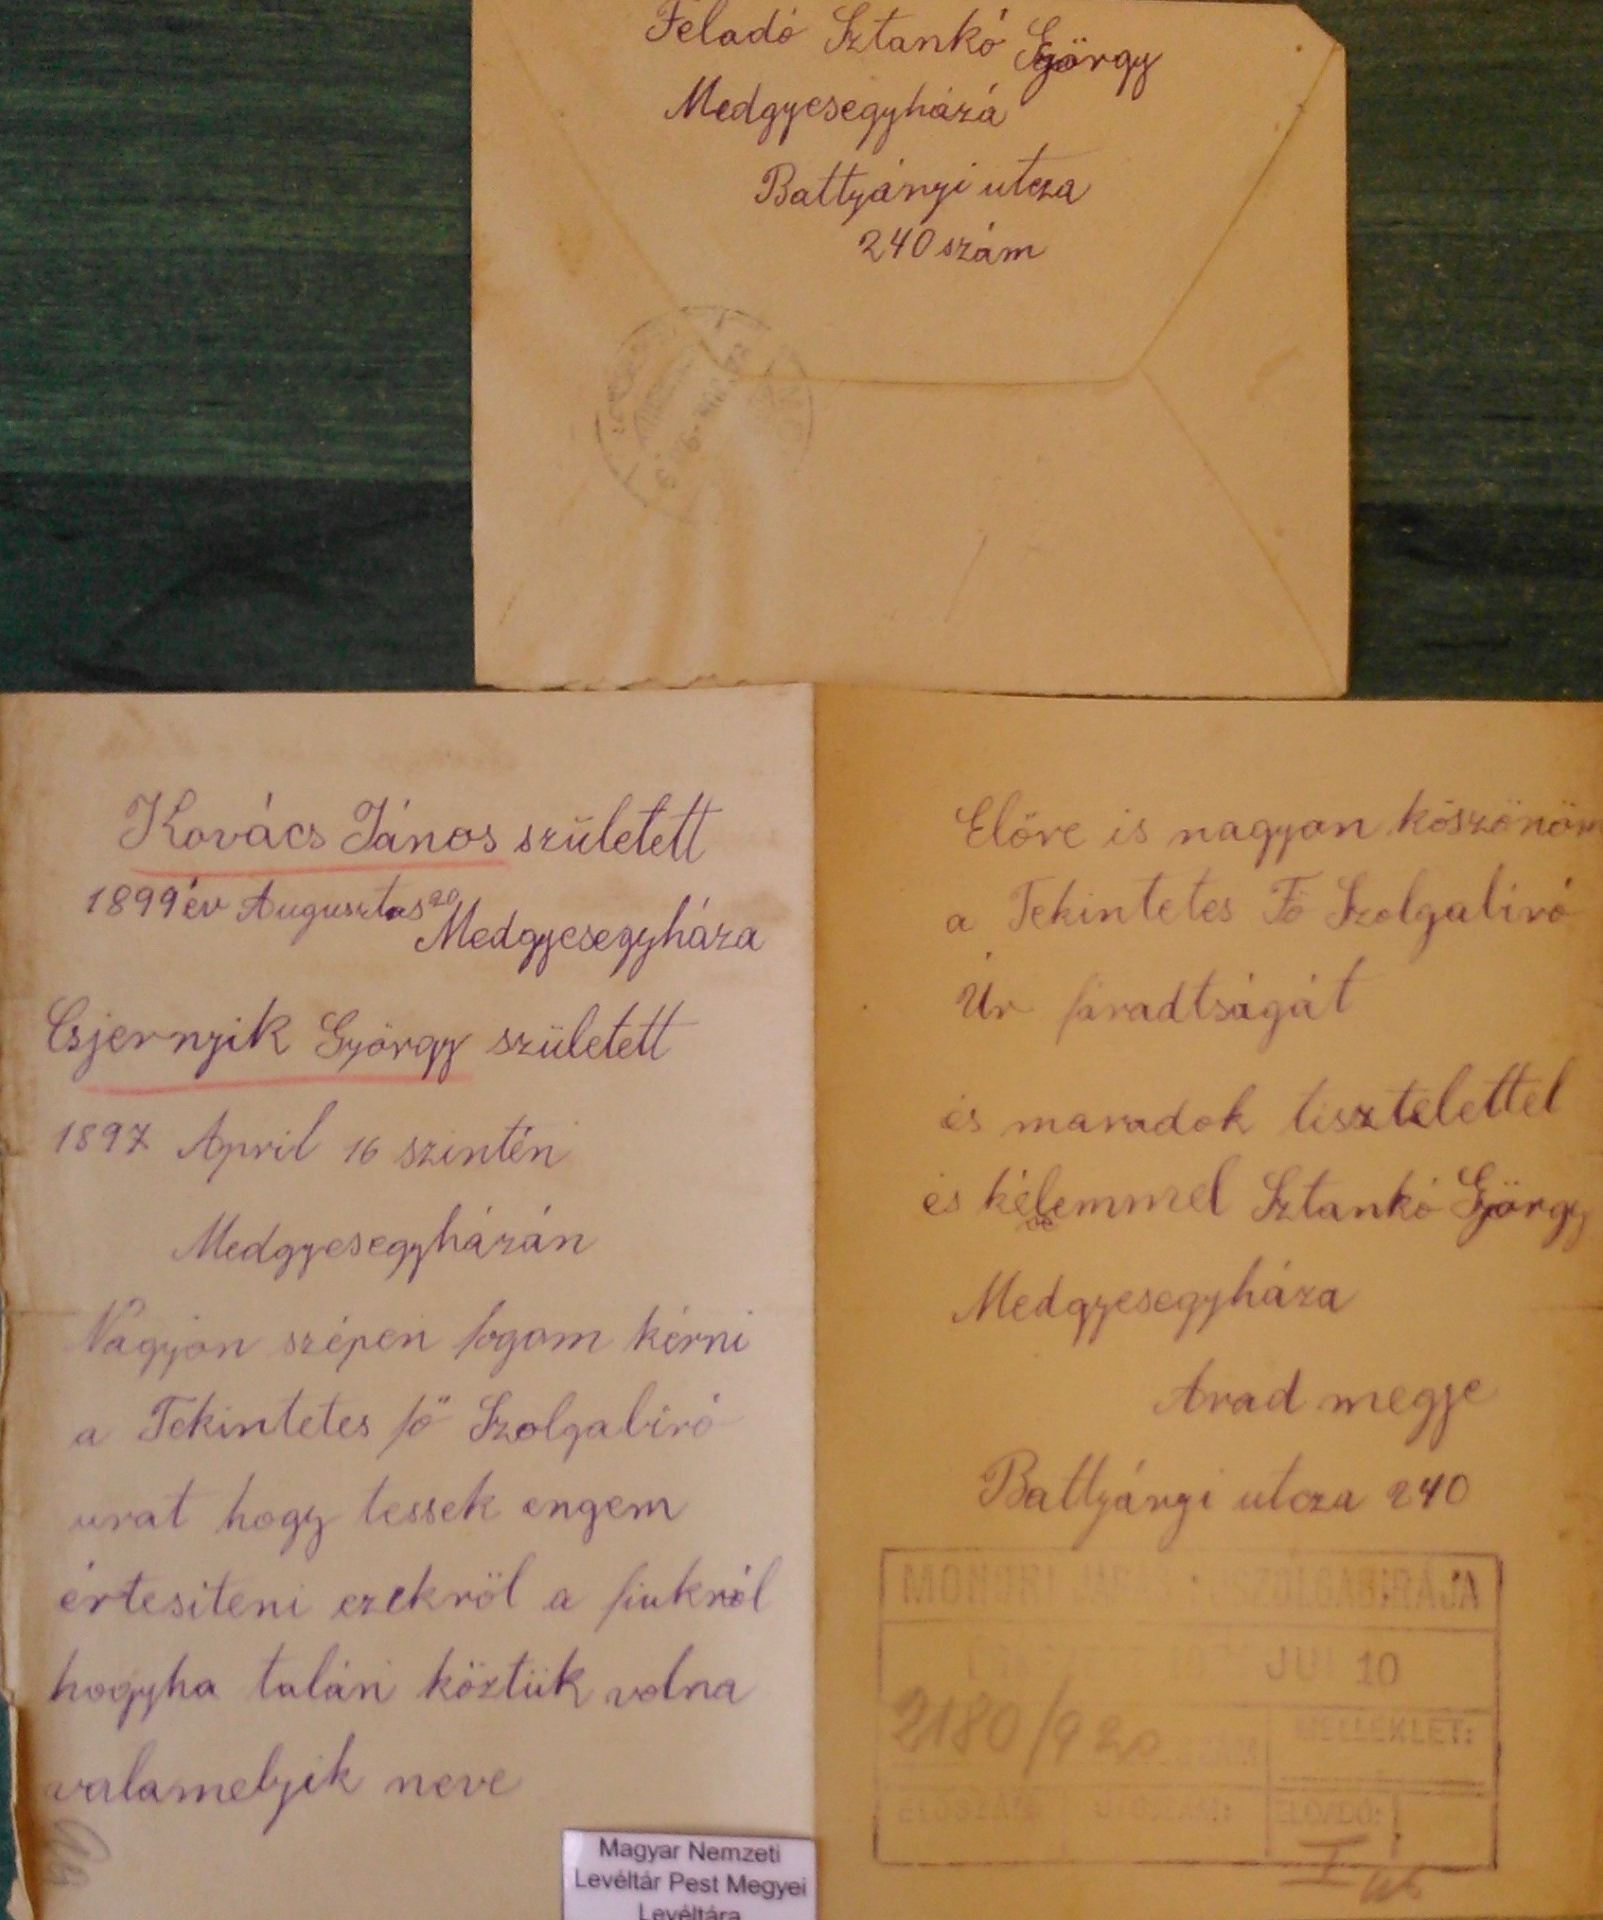 Feladó Sztankó György
Medgyesegyházá
Battyányi utcza
240 szám
Kovács János született
1899 év Augusztus 20
Medgyesegyháza
Csjernyik György született
1897 April 16 szintén
Medgyesegyházán
Nagyon szépen fogom kérni
a Tekintetes fő Szolgabiró
urat hogy tessek engem
értesiteni ezekröl a fiukról
hogyha talán köztük volna
valamelyik neve
Előre is nagyon köszönöm
a Tekintetes Fő Szolgabiró
Úr fáradtságát
és maradok tisztelettel
és kélemmel Sztankó György
Medgyesegyháza
Arad megje
Battyányi utcza 240
SZOLGABIRÁJA
JUL 10
2180/920
MELLÉKLET:
ELŐSZÁM: UTÓSZÁM:
ELŐADÓ:
I
Magyar Nemzeti
Levéltár Pest Megyei
Levéltára